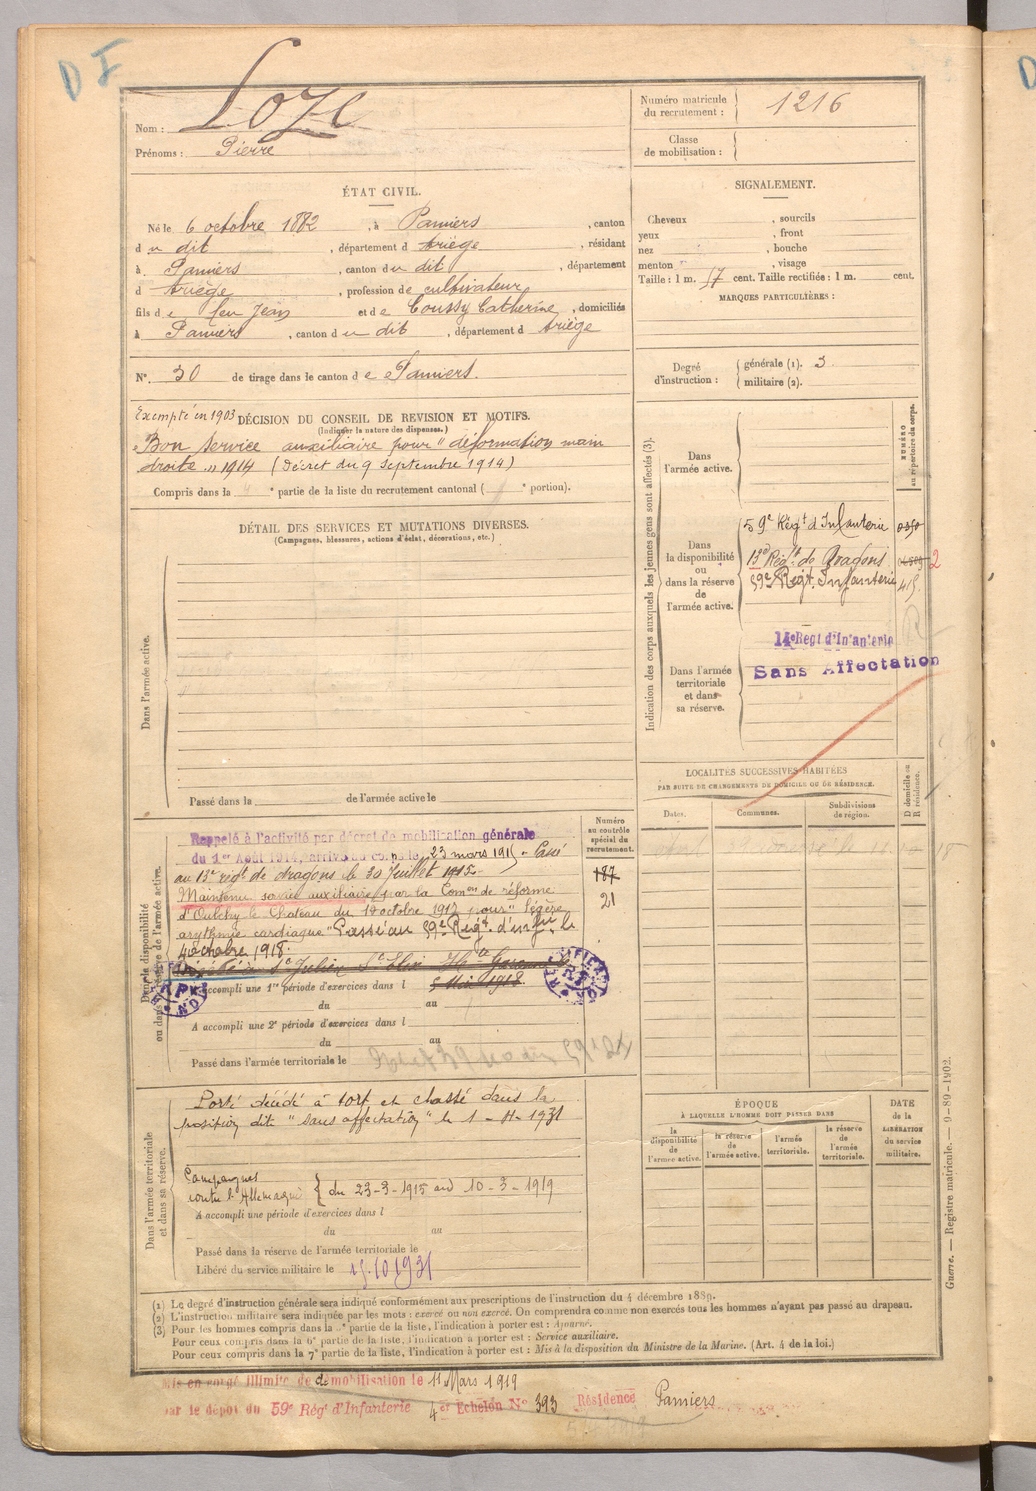 D I
Nom : Loze
Prénoms : Pierre
Numéro matricule du recrutement : 1216
Classe de mobilisation :
ÉTAT CIVIL.
Né le 6 octobre 1882, à Pamiers, canton
d u dit, département d Ariège, résidant
à Pamiers, canton d u dit, département
d Ariège, profession de cultivateur
fils d e feu Jean et de Coussy Catherine, domiciliés
à Pamiers, canton d u dit, département d Ariège
N° 30 de tirage dans le canton d e Pamiers.
SIGNALEMENT.
Cheveux , sourcils
yeux , front
nez , bouche
menton , visage
Taille : 1 m. 57 cent. Taille rectifiée : 1 m. cent.
MARQUES PARTICULIÈRES :
Degré d'instruction : générale (1). 3
militaire (2).
Exempté en 1903 DÉCISION DU CONSEIL DE REVISION ET MOTIFS.
(Indiquer la nature des dispenses.)
Bon service auxiliaire pour "déformation main
droite" 1914 (Décret du 9 Septembre 1914)
Compris dans la e partie de la liste du recrutement cantonal ( e portion).
DÉTAIL DES SERVICES ET MUTATIONS DIVERSES.
(Campagnes, blessures, actions d'éclat, décorations, etc.)
Dans l'armée active.
Passé dans la de l'armée active le
Indication des corps auxquels les jeunes gens sont affectés (3).
NUMÉRO au répertoire du corps.
Dans l'armée active.
Dans la disponibilité ou dans la réserve de l'armée active.
59e Régt d'Infanterie
13e Régt de Dragons 2
59e Régt Infanterie 415
Dans l'armée territoriale et dans sa réserve.
14e Régt d'Infanterie
Sans Affectation
LOCALITÉS SUCCESSIVES HABITÉES
PAR SUITE DE CHANGEMENTS DE DOMICILE OU DE RÉSIDENCE.
Dates.
Communes.
Subdivisions de région.
D domicile ou R résidence.
Dans la disponibilité ou dans la réserve de l'armée active.
Numéro au contrôle spécial du recrutement.
187
21
Rappelé à l'activité par décret de mobilisation générale
du 1er Août 1914, arrivé au corps le 23 mars 1915 - Passé
au 13e régt de dragons le 20 juillet 1915 -
Maintenu service auxiliaire par la Comon de réforme
d'Oulchy le Chateau du 10 octobre 1917 pour "légère
arythmie cardiaque" Passé au 59e Régt d'Infie le
4 octobre 1918.
A accompli une 1re période d'exercices dans l
du au
A accompli une 2e période d'exercices dans l
du au
Passé dans l'armée territoriale le
Dans l'armée territoriale et dans sa réserve.
Porté décédé à tort et classé dans la
position dite "sans affectation" le 1-11-1931
Campagnes
contre l'Allemagne { du 23-3-1915 au 10-3-1919
A accompli une période d'exercices dans l
du au
Passé dans la réserve de l'armée territoriale le
Libéré du service militaire le 15.10 1931
ÉPOQUE
À LAQUELLE L'HOMME DOIT PASSER DANS
la disponibilité de l'armée active.
la réserve de l'armée active.
l'armée territoriale.
la réserve de l'armée territoriale.
DATE de la LIBÉRATION du service militaire.
(1) Le degré d'instruction générale sera indiqué conformément aux prescriptions de l'instruction du 4 décembre 1889.
(2) L'instruction militaire sera indiquée par les mots : exercé ou non exercé. On comprendra comme non exercés tous les hommes n'ayant pas passé au drapeau.
(3) Pour les hommes compris dans la partie de la liste, l'indication à porter est : Ajourné.
Pour ceux compris dans la 6e partie de la liste, l'indication à porter est : Service auxiliaire.
Pour ceux compris dans la 7e partie de la liste, l'indication à porter est : Mis à la disposition du Ministre de la Marine. (Art. 4 de la loi.)
Guerre. — Registre matricule. — 9-89-1902.
Mis en congé illimité de démobilisation le 11 Mars 1919
par le dépôt du 59e Rég' d'Infanterie 4e Echelon N° 393 Résidence Pamiers